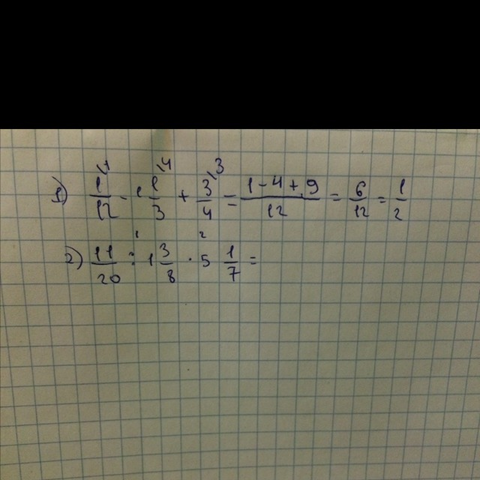 1) 1/12 - 1 1/3 + 3/4 = (1 - 4 + 9)/12 = 6/12 = 1/2
2) 11/20 : 1 3/8 · 5 1/7 =